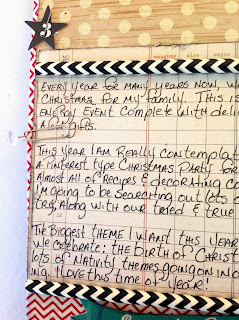 3
naughty nice maybe
Every year for many years now, we
Christmas for my family. This is
energy event complete with deli
gifts.
This year I am really contemplat
a Pinterest type Christmas party for
Almost all of recipes & decorating co
I'm going to be searching out lots o
try, along with our tried & true
The biggest theme I want this year
we celebrate: the birth of Christ
lots of Nativity themes going on in o
ing. I love this time of year!